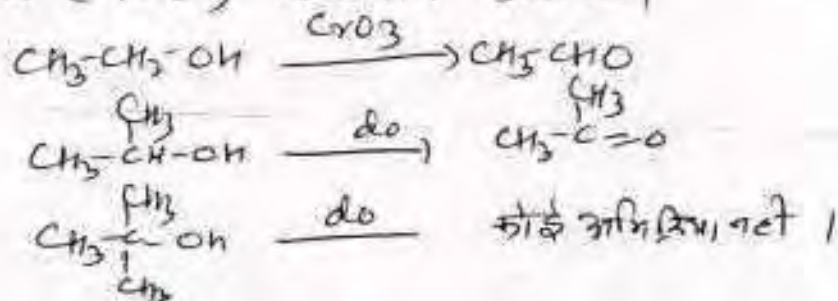 CH3-CH2-OH CrO3 → CH3-CHO
CH3 CH3
CH3-CH-OH do → CH3-C=O
CH3
CH3-C-OH do कोई अभिक्रिया नहीं ।
CH3